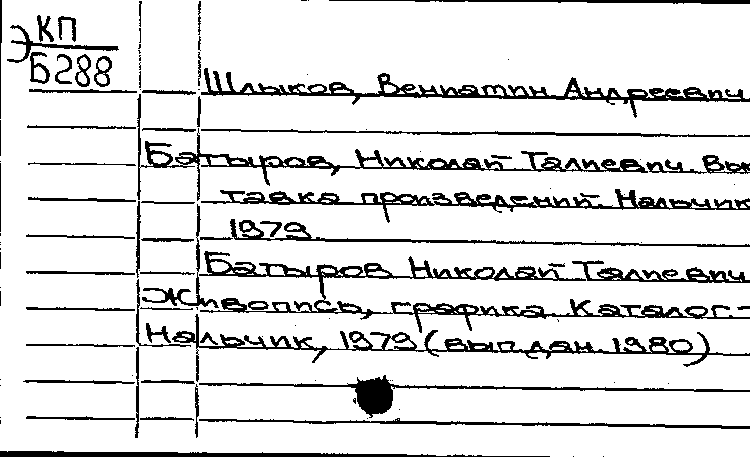 Э КП
Б288
Шлыков, Вениамин Андреевич
Батыров, Николай Талиевич. Выс
тавка произведений. Нальчик
1979.
Батыров Николай Талиевич
Живопись, графика. Каталог.-
Нальчик, 1979 (вып.дан. 1980)